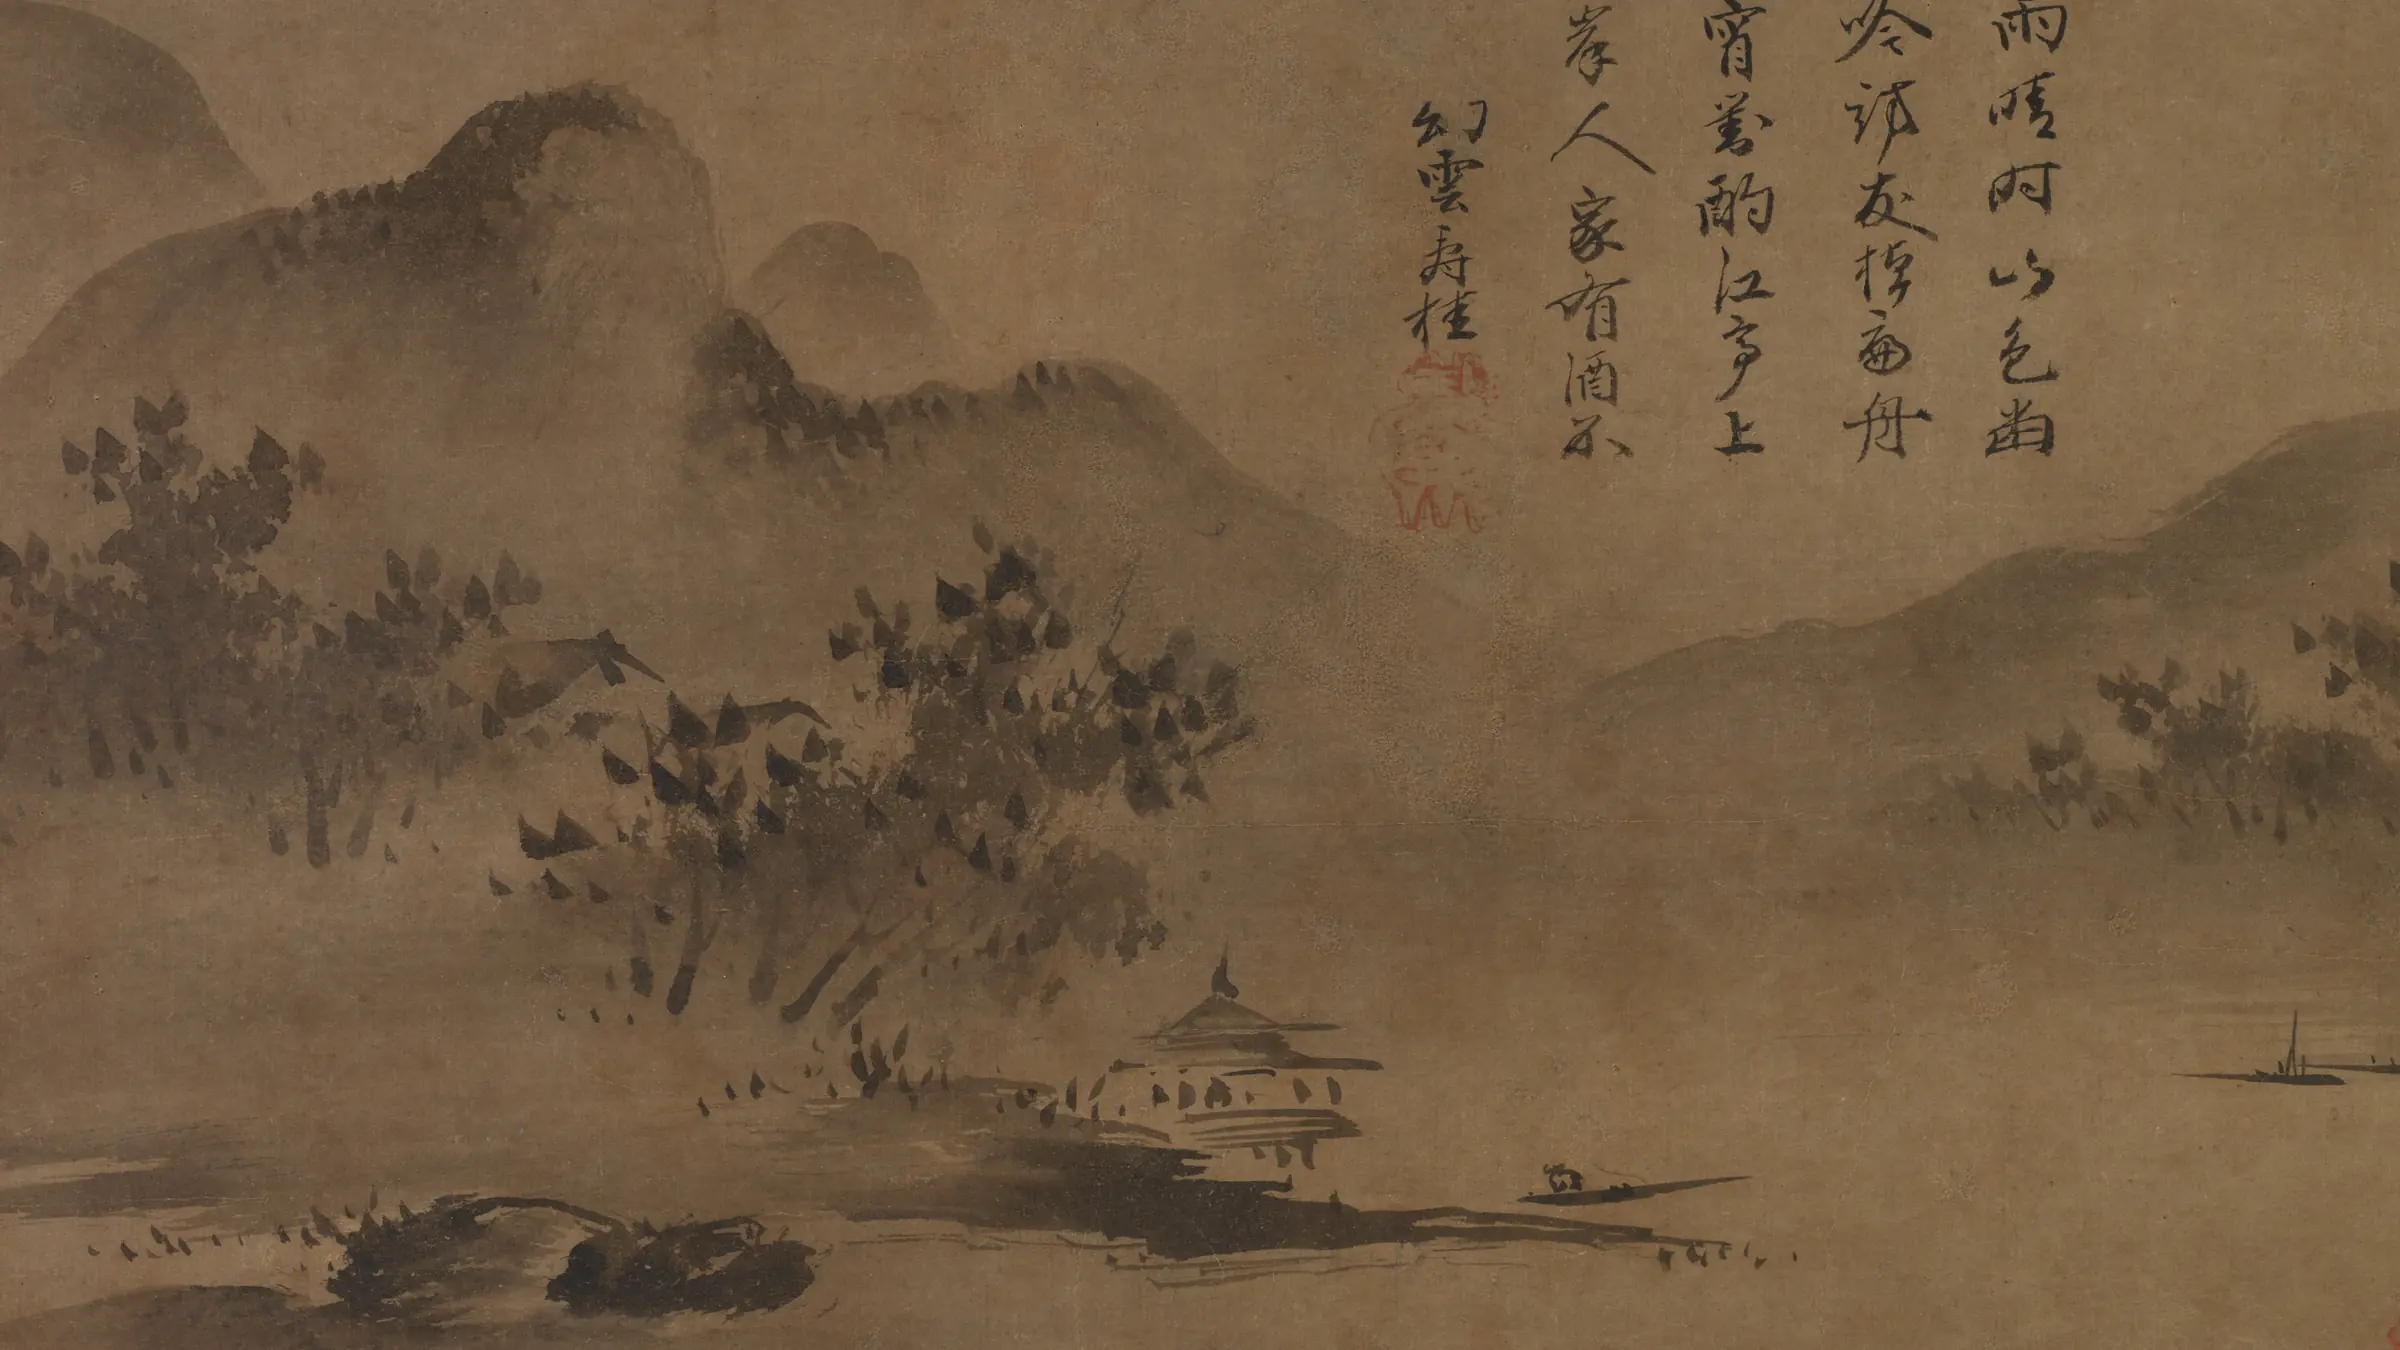 雨晴時山色幽
吟訪友棹扁舟
宵對酌江亭上
岸人家有酒不
幻雲壽桂